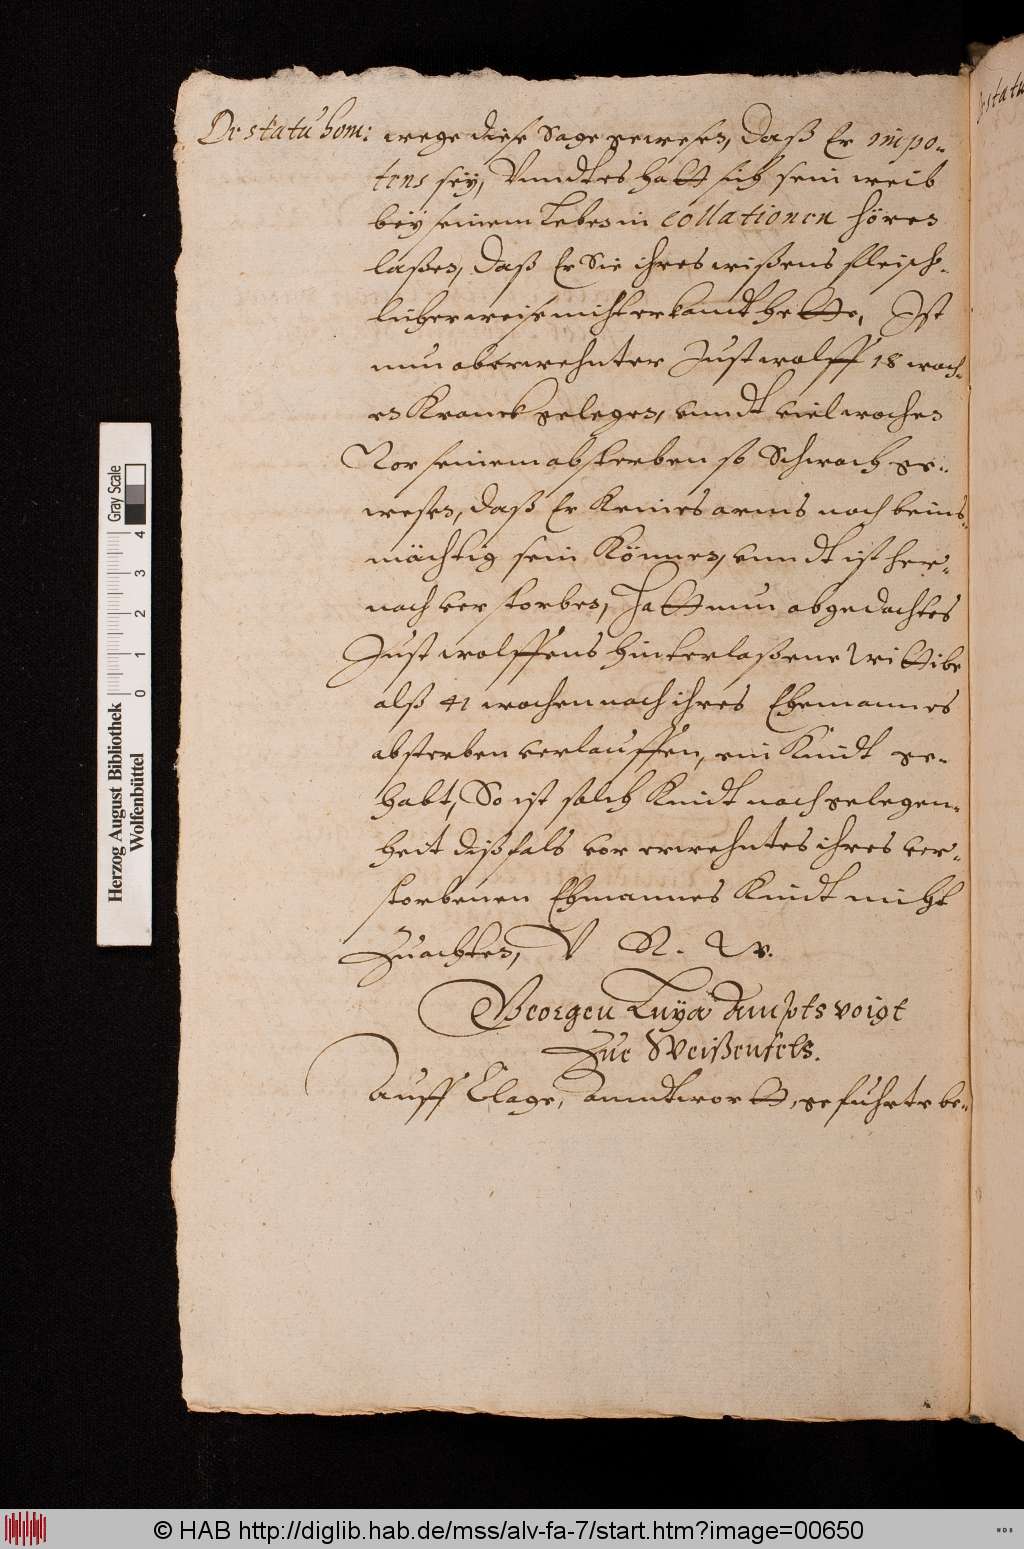 De statu hom:
wege diese Sage gewesen, daß Er impo-
tens seÿ, Vnndt es hatt sich sein weib
beÿ seinem Leben in Collationen hören
laßen, daß Er Sie ihres wißens fleisch-
licher weise nicht erkandt hette, Ist
nun oberwehnter Just wolff 18 woch-
en Kranck gelegen, vnndt viel wochen
Vor seinem absterben so Schwach ge-
wesen, daß Er Keines arms noch beins-
mächtig sein Können, vnndt ist her-
nach verstorben, Hatt nun abgedachtes
Just wolffens hinterlaßene Wittibe
alß 41 wochen nach ihres Ehemannes
absterben verlauffen, ein Kindt ge-
habt, So ist solch Kindt nach gelegen-
heit dißfals vor erwehntes ihres ver-
storbenen Ehmannes Kindt nicht
Zuachten, V R. W.
Georgen Luÿa Ampts voigt
Zue Weißenfels.
Auff Clage, anndtwortt, geführte be-
Gray Scale
0 1 2 3 4
Herzog August Bibliothek
Wolfenbüttel
© HAB http://diglib.hab.de/mss/alv-fa-7/start.htm?image=00650